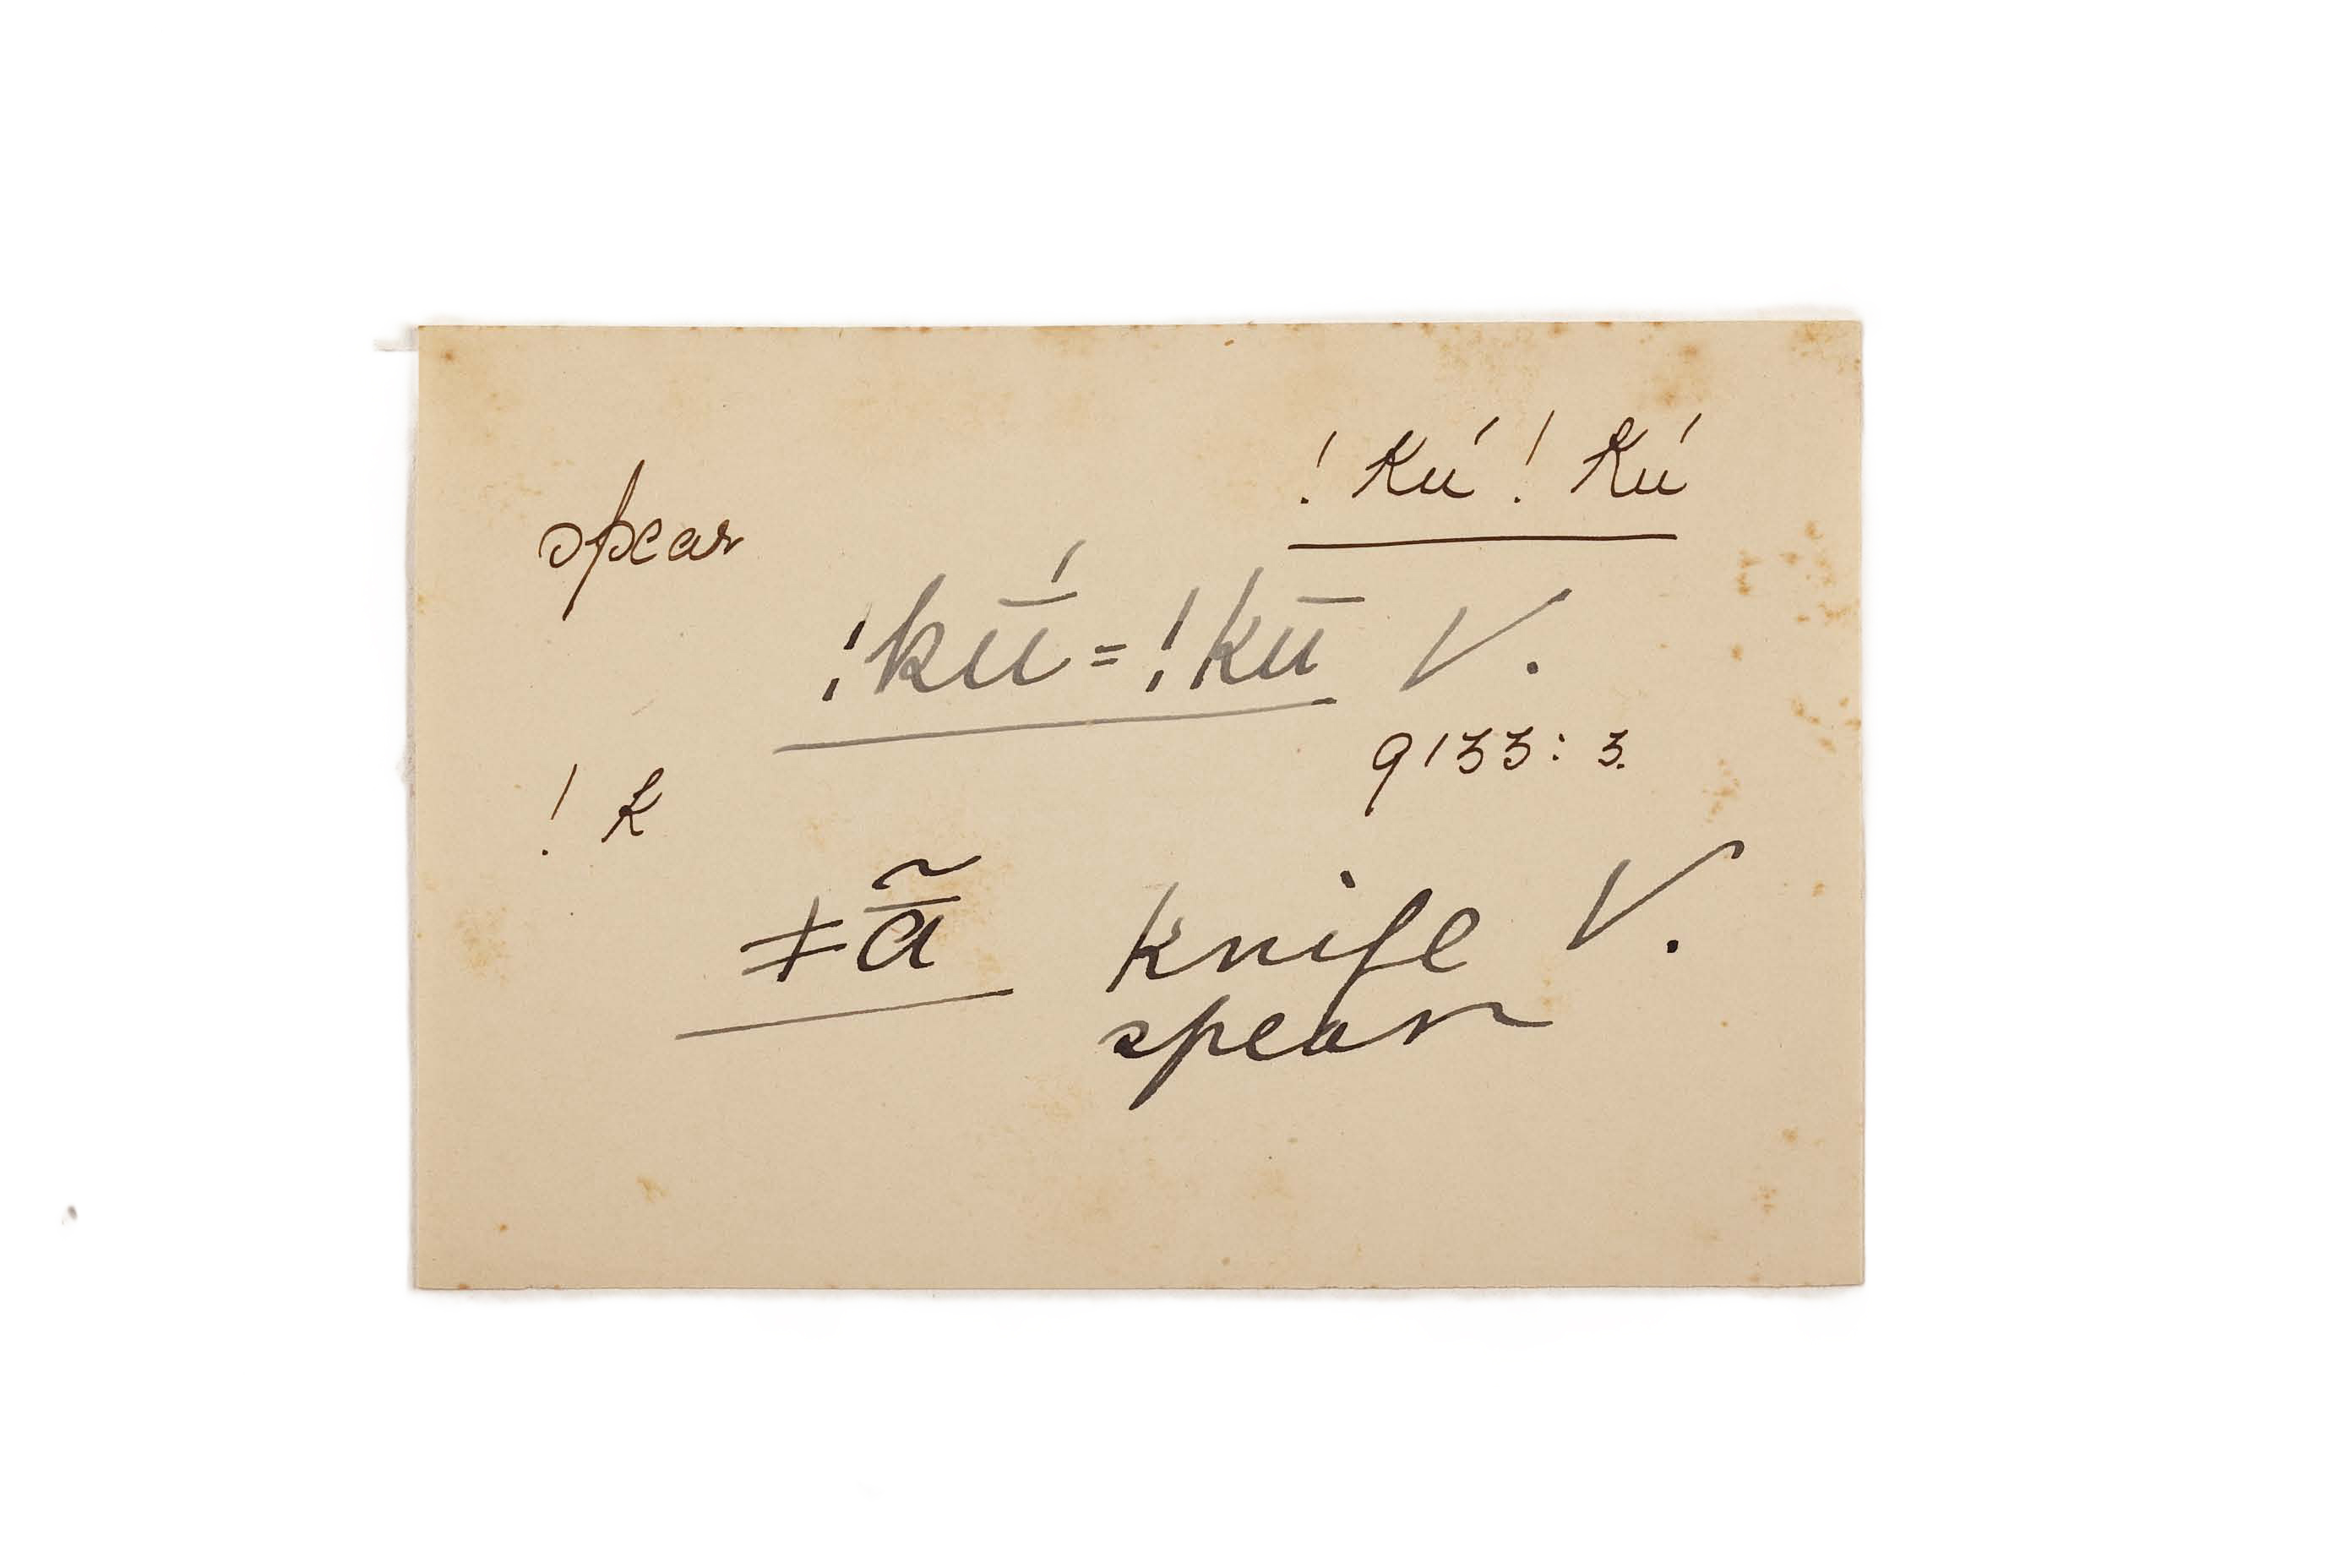 ! Kú ! Kú
spear
!kū́ = !kū V.
9133: 3.
! k
ǂã̄ knife V.
spear